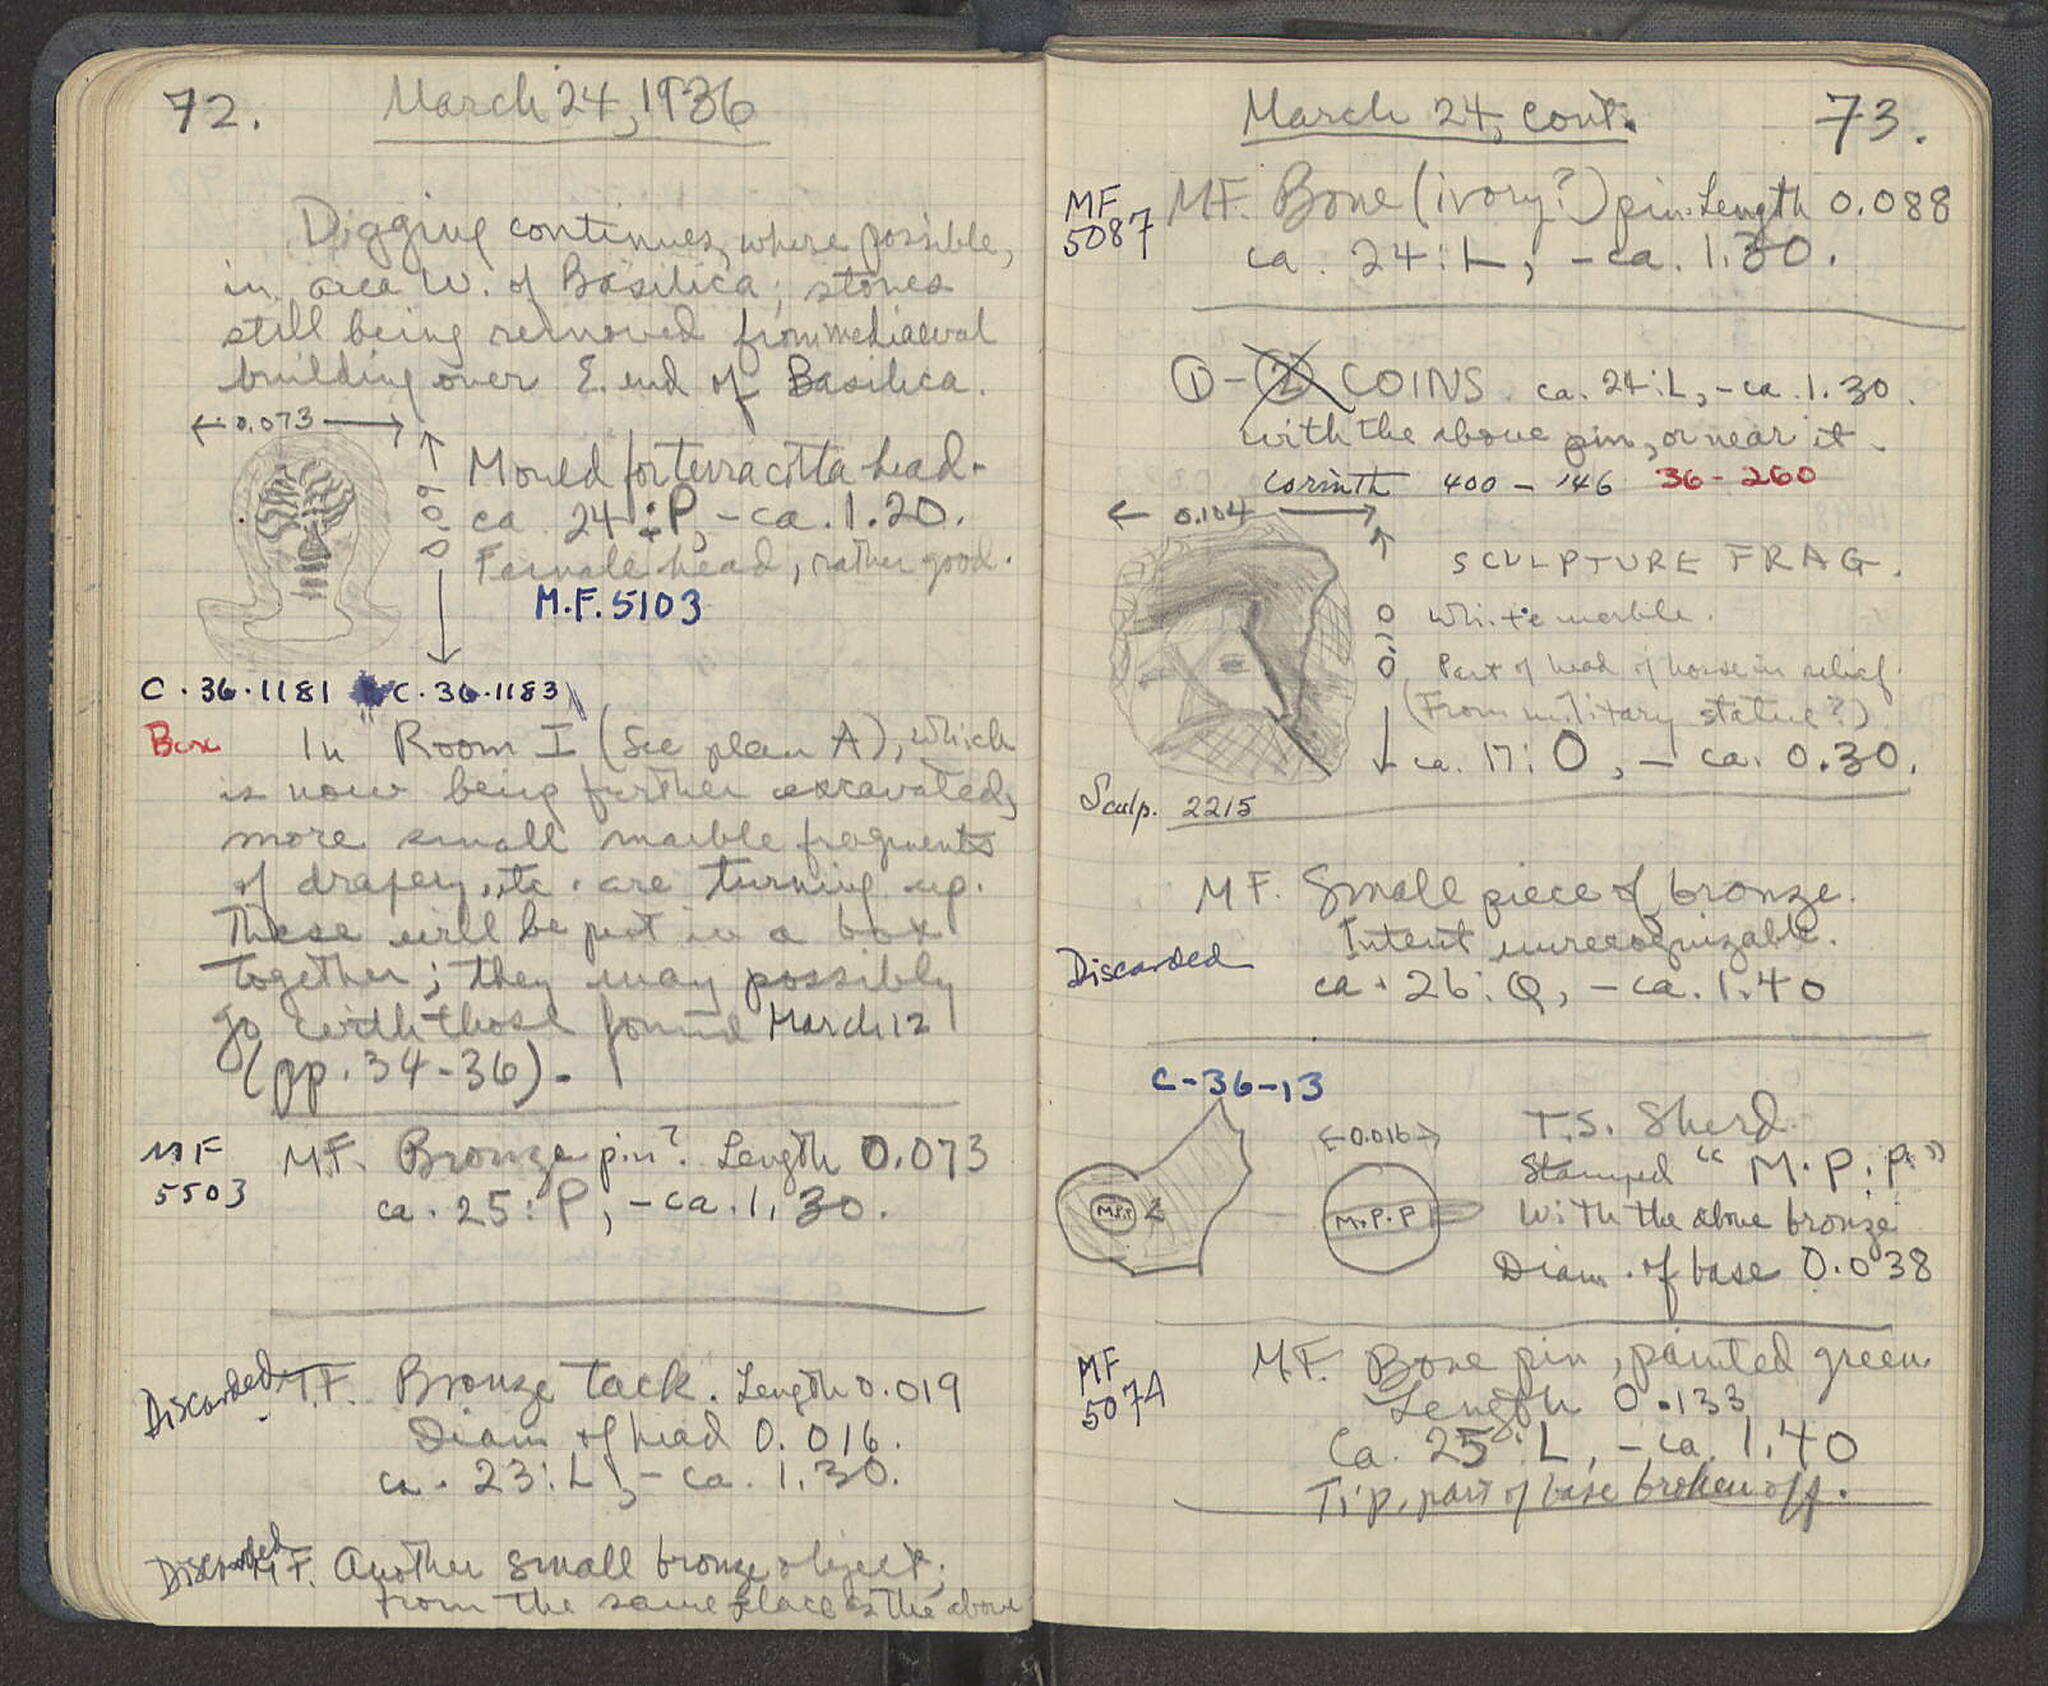 72.
March 24, 1936
Digging continues, where possible,
in area W. of Basilica; stones
still being removed from mediaeval
building over E. end of Basilica.
0.073
0.09
Mould for terracotta head.
ca. 24:P, -ca. 1.20.
Female head, rather good.
M.F. 5103
C.36.1181 C.36.1183
Box
In "Room I" (See plan A), which
is now being further excavated,
more small marble fragments
of drapery, etc. are turning up.
These will be put in a box
together; they may possibly
go with those found March 12
(pp. 34-36).
MF
5503
MF. Bronze pin? Length 0.073
ca. 25:P, -ca. 1.30.
Discarded
M.F. Bronze tack. Length 0.019
Diam of head 0.016.
ca. 23:L, - ca. 1.30.
Discarded
M.F. Another small bronze object;
from the same place as the above
March 24, cont.
73.
MF
5087
MF. Bone (ivory?) pin. Length 0.088
ca. 24:L, -ca. 1.30.
① - ② COINS. ca. 24:L, -ca. 1.30.
with the above pin, or near it.
Corinth 400 - 146 36-260
0.104
SCULPTURE FRAG.
White marble.
Part of head of horse in relief.
(From military statue?)
ca. 17:O, - ca. 0.30.
Sculp. 2215
MF. Small piece of bronze.
Intent unrecognizable.
Discarded
ca. 26:Q, -ca. 1.40
C-36-13
0.016
T.S. Sherd.
Stamped "M.P.P."
With the above bronze
Diam. of base 0.038
M.P.P
M.P.P
MF
5074
M.F. Bone pin, painted green.
Length 0.133
Ca. 25:L, -ca. 1.40
Tip, part of base broken off.